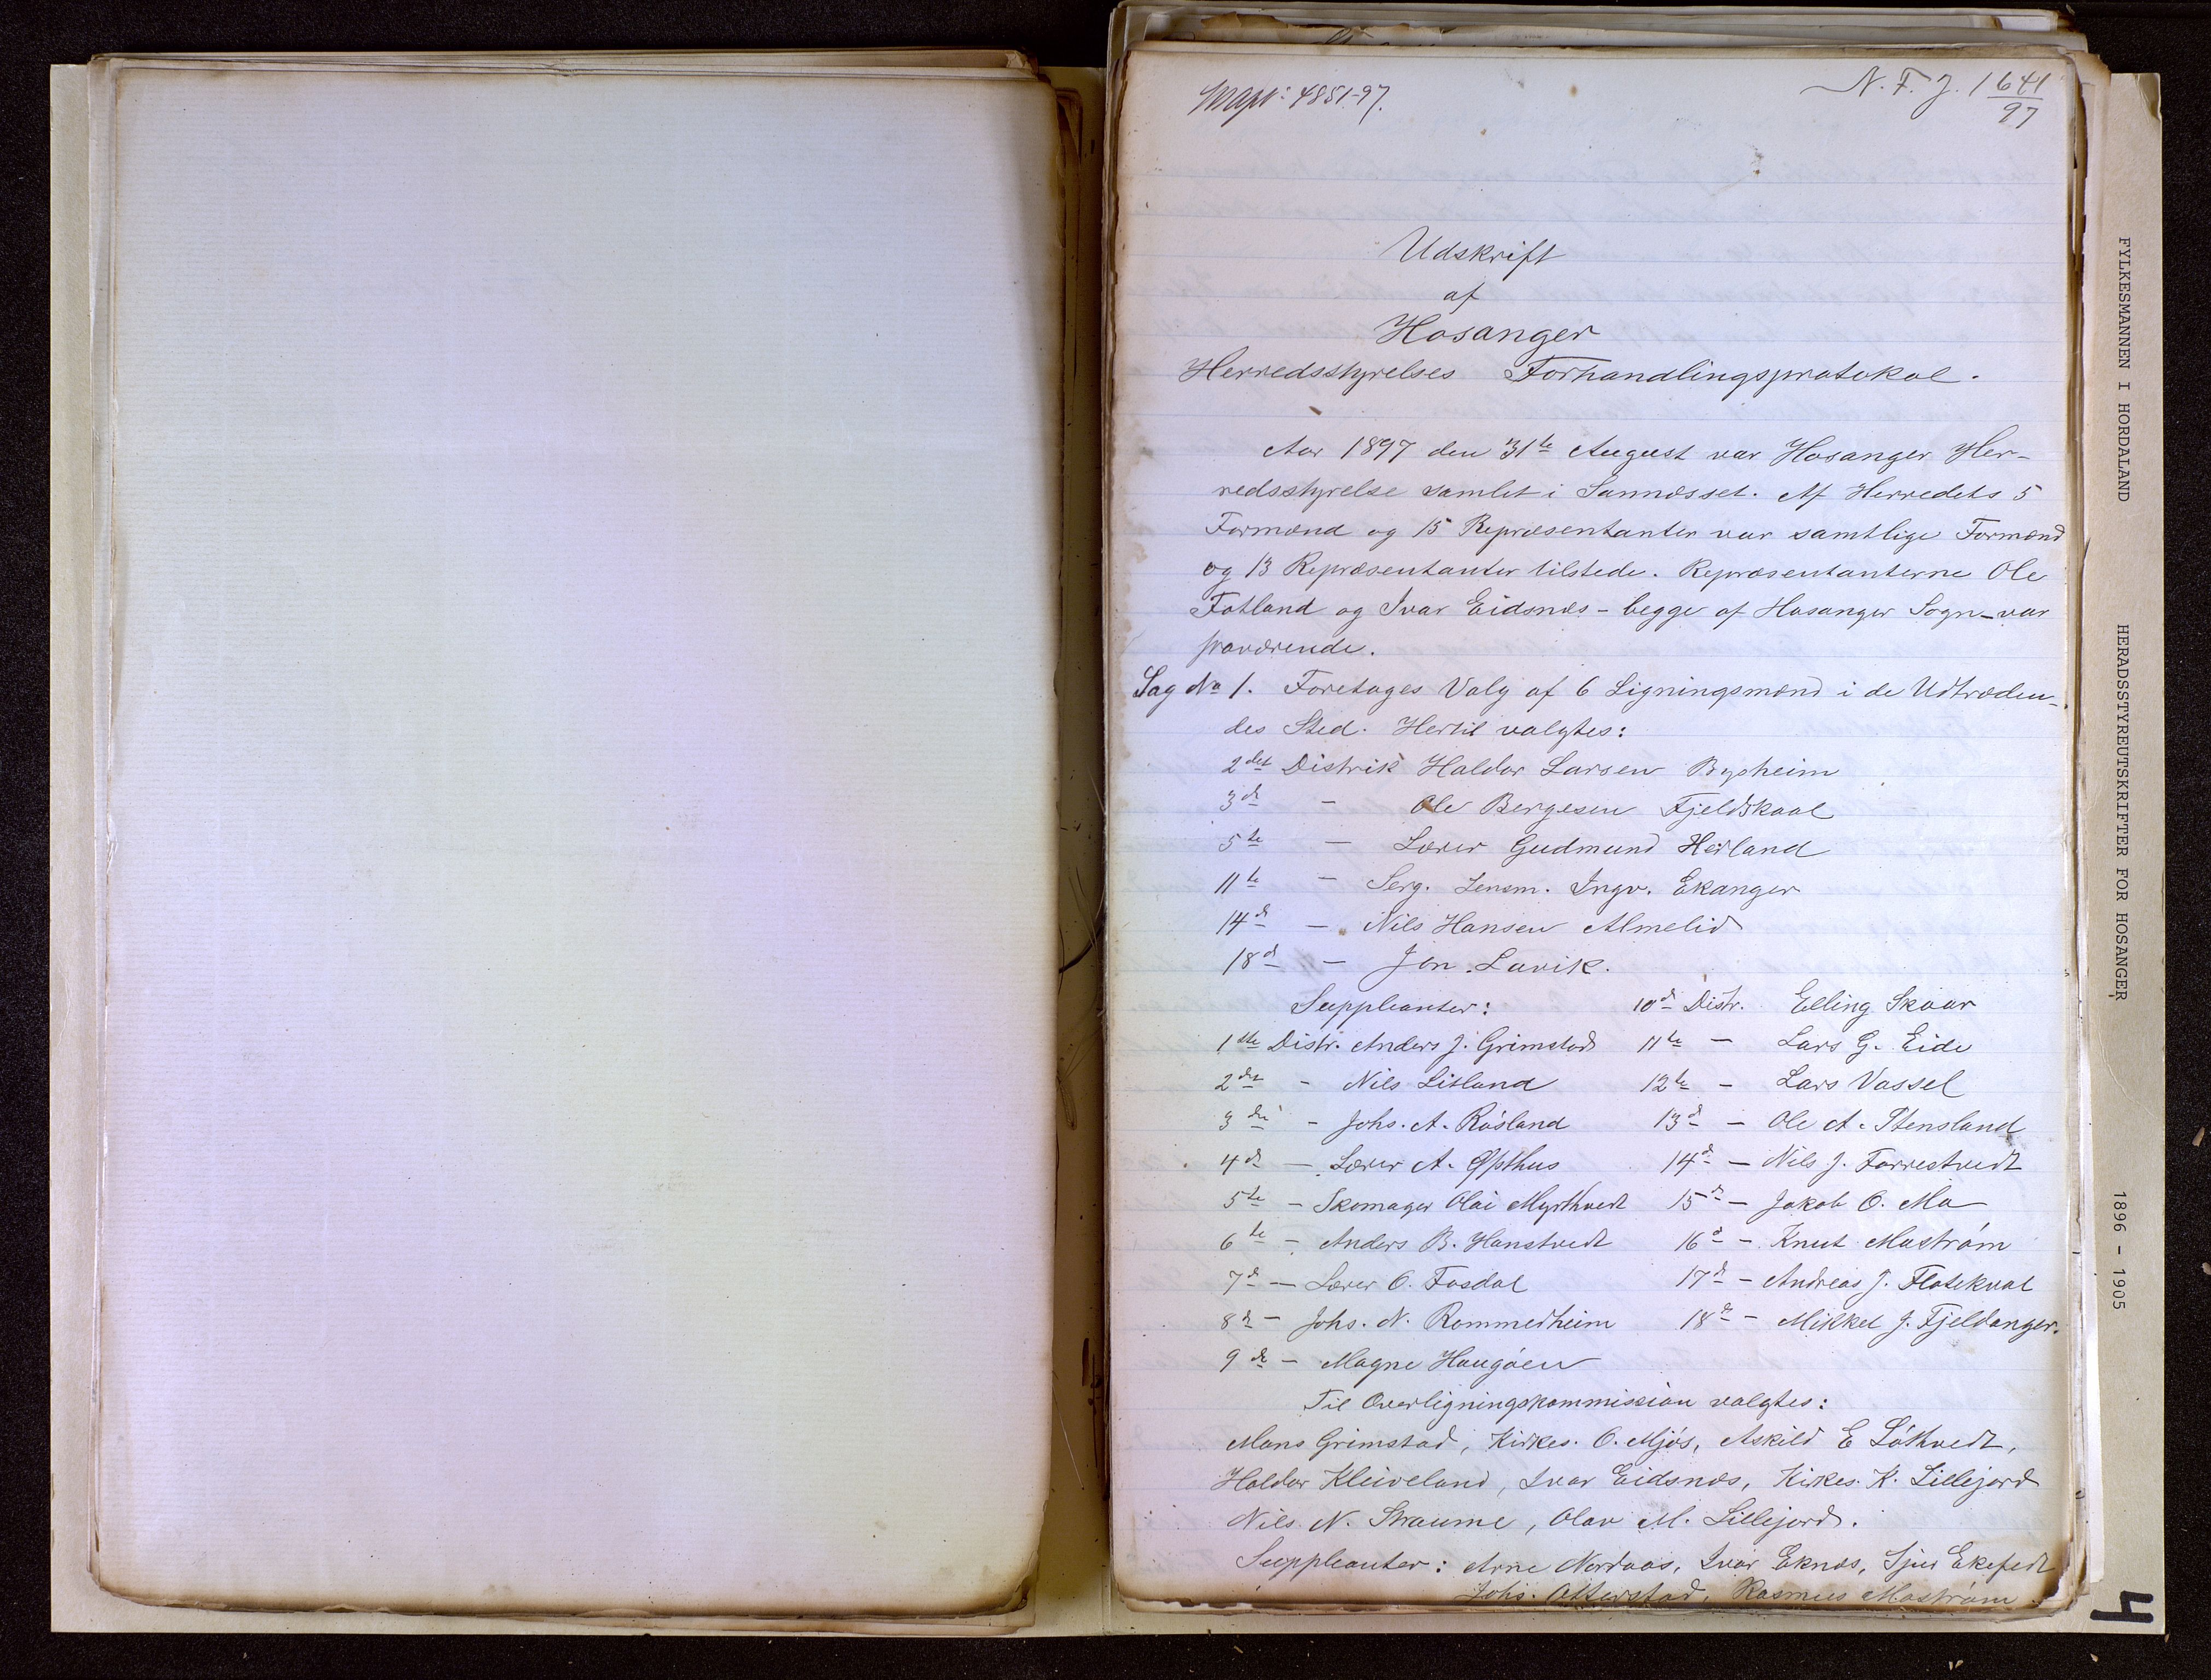 Mapp: 4851-97.
N. F. J. 1641/97
Udskrift
af
Hosanger
Herredsstyrelses Forhandlingsprotokol.
Aar 1897 den 31te August var Hosanger Her-
redsstyrelse samlet i Sannæsset. Af Herredets 5
Formænd og 15 Repræsentanter var samtlige Formænd
og 13 Repræsentanter tilstede. Repræsentanterne Ole
Fotland og Ivar Eidsnæs - begge af Hosanger Sogn - var
fraværende.
Sag No 1. Foretages Valg af 6 Ligningsmænd i de Udtræden-
des Sted. Hertil valgtes:
2det Distrik Haldor Larsen Bysheim
3de - Ole Bergesen Fjeldskaal
5te - Lærer Gudmund Heiland
11te - Serg. Lensm. Ingv. Ekanger
14de - Nils Hansen Almelid
18de - Jon Lavik.
Suppleanter:
1ste Distr. Anders J. Grimstad
2det - Nils Litland
3die - Johs. A. Røsland
4de - Lærer A. Øpsthus
5te - Skomager Olai Myrthvedt
6te - Anders B. Hanstvedt
7de - Lærer O. Fosdal
8de - Johs. N. Rommedheim
9de - Magne Haugøen
10de Distr. Elling Skaar
11te - Lars G. Eide
12te - Lars Vassel
13de - Ole A. Stensland
14de - Nils J. Forrestvedt
15de - Jakob O. Mo
16de - Knut Mostrøm
17de - Andreas J. Flatekval
18de - Mikkel J. Fjeldanger.
Til Overligningskommission valgtes:
Mons Grimstad, Kirkes. O. Mjøs, Askild E Løthvedt,
Haldor Kleiveland, Ivar Eidsnæs, Kirkes. K. Lillejord
Nils N. Straume, Olav M. Lillejord.
Suppleanter: Arne Nordaas, Ivar Eknæs, Sjur Ekefedt
Johs. Otterstad, Rasmus Mostrøm
FYLKESMANNEN I HORDALAND HERADSSTYREUTSKRIFTER FOR HOSANGER 1896 - 1905
4